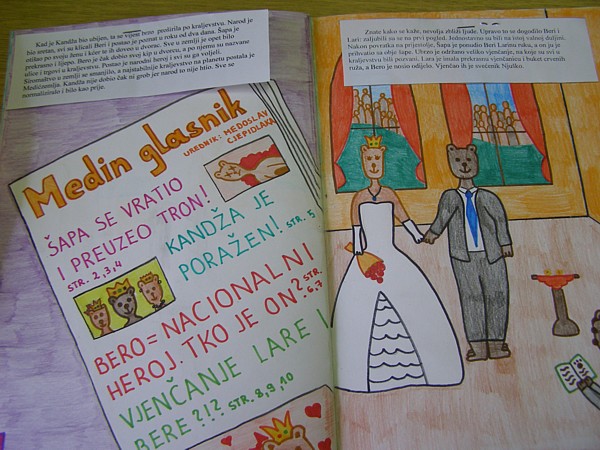 Kad je Kandža bio ubijen, ta se vijest brzo proširila po kraljevstvu. Narod je
bio sretan, svi su klicali Beri i postao je poznat u roku od dva dana. Šapa je
otišao po svoju ženu i kćer te ih doveo u dvorac. Sve u zemlji je opet bilo
prekrasno i lijepo. Bero je čak dobio svoj kip u dvorcu, a po njemu su nazvane
ulice i trgovi u kraljevstvu. Postao je narodni heroj i svi su ga voljeli.
Siromaštvo u zemlji se smanjilo, a najstabilnije kraljevstvo na planetu postala je
Medićzemlja. Kandža nije dobio čak ni grob jer narod to nije htio. Sve se
normaliziralo i bilo kao prije.
Medin glasnik
UREDNIK: MEDOSLAV
CJEPIDLAKA
ŠAPA SE VRATIO
I PREUZEO TRON!
STR. 2,3,4
KANDŽA JE
PORAŽEN! STR. 5
BERO = NACIONALNI
HEROJ. TKO JE ON? STR. 6,7
VJENČANJE LARE I
BERE ?!? STR. 8,9,10
Znate kako se kaže, nevolja zbliži ljude. Upravo to se dogodilo Beri i
Lari: zaljubili su se na prvi pogled. Jednostavno su bili na istoj valnoj duljini.
Nakon povratka na prijestolje, Šapa je ponudio Beri Larinu ruku, a on ju je
prihvatio za obje šape. Ubrzo je održano veliko vjenčanje, na koje su svi u
kraljevstvu bili pozvani. Lara je imala prekrasnu vjenčanicu i buket crvenih
ruža, a Bero je nosio odijelo. Vjenčao ih je svećenik Njuško.